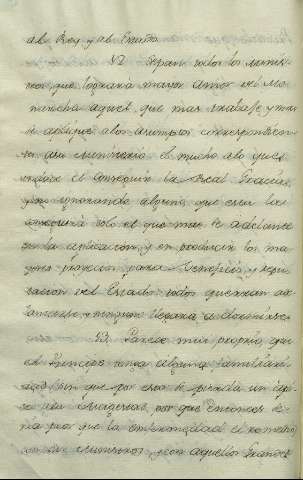 al Rey y al Estado.
12 Sepan todos los Minis-
tros, que logrará mayor amor del Mo-
narcha aquel, que mas trabaje, y mas
se aplique a los asumptos correspondien-
tes a su Ministerio. Es mucho lo que
el conseguir la Real Gracia,
y no ignorando alguno, que esta la
conseguirá solo el que mas se adelante
en la aplicacion, y en producir los ma-
yores proyectos para beneficio, y repu-
tacion del Estado: todos querran ade-
lantarse, y ninguno llegará a
13. Parece muy proprio, que
el Principe tenga alguna familiari-
dad, sin que por esta se pierda un
de su por que entonces se-
ria peor que la enfermedad el remedio
con los Ministros, y con aquellos Grandes